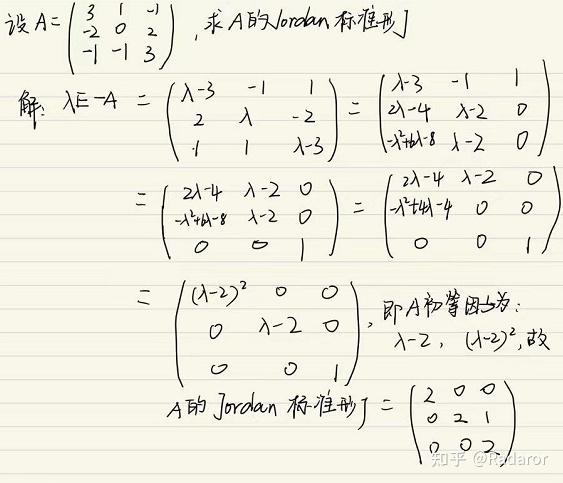 设 A = ( 3 1 -1 ; -2 0 2 ; -1 -1 3 ) , 求A的Jordan标准形J
解: λE-A = ( λ-3 -1 1 ; 2 λ -2 ; 1 1 λ-3 ) = ( λ-3 -1 1 ; 2λ-4 λ-2 0 ; -λ²+6λ-8 λ-2 0 )
= ( 2λ-4 λ-2 0 ; -λ²+6λ-8 λ-2 0 ; 0 0 1 ) = ( 2λ-4 λ-2 0 ; -λ²+4λ-4 0 0 ; 0 0 1 )
= ( (λ-2)² 0 0 ; 0 λ-2 0 ; 0 0 1 ) , 即A初等因子为:
λ-2, (λ-2)², 故
A的Jordan标准形J = ( 2 0 0 ; 0 2 1 ; 0 0 2 )
知乎 @Radaror